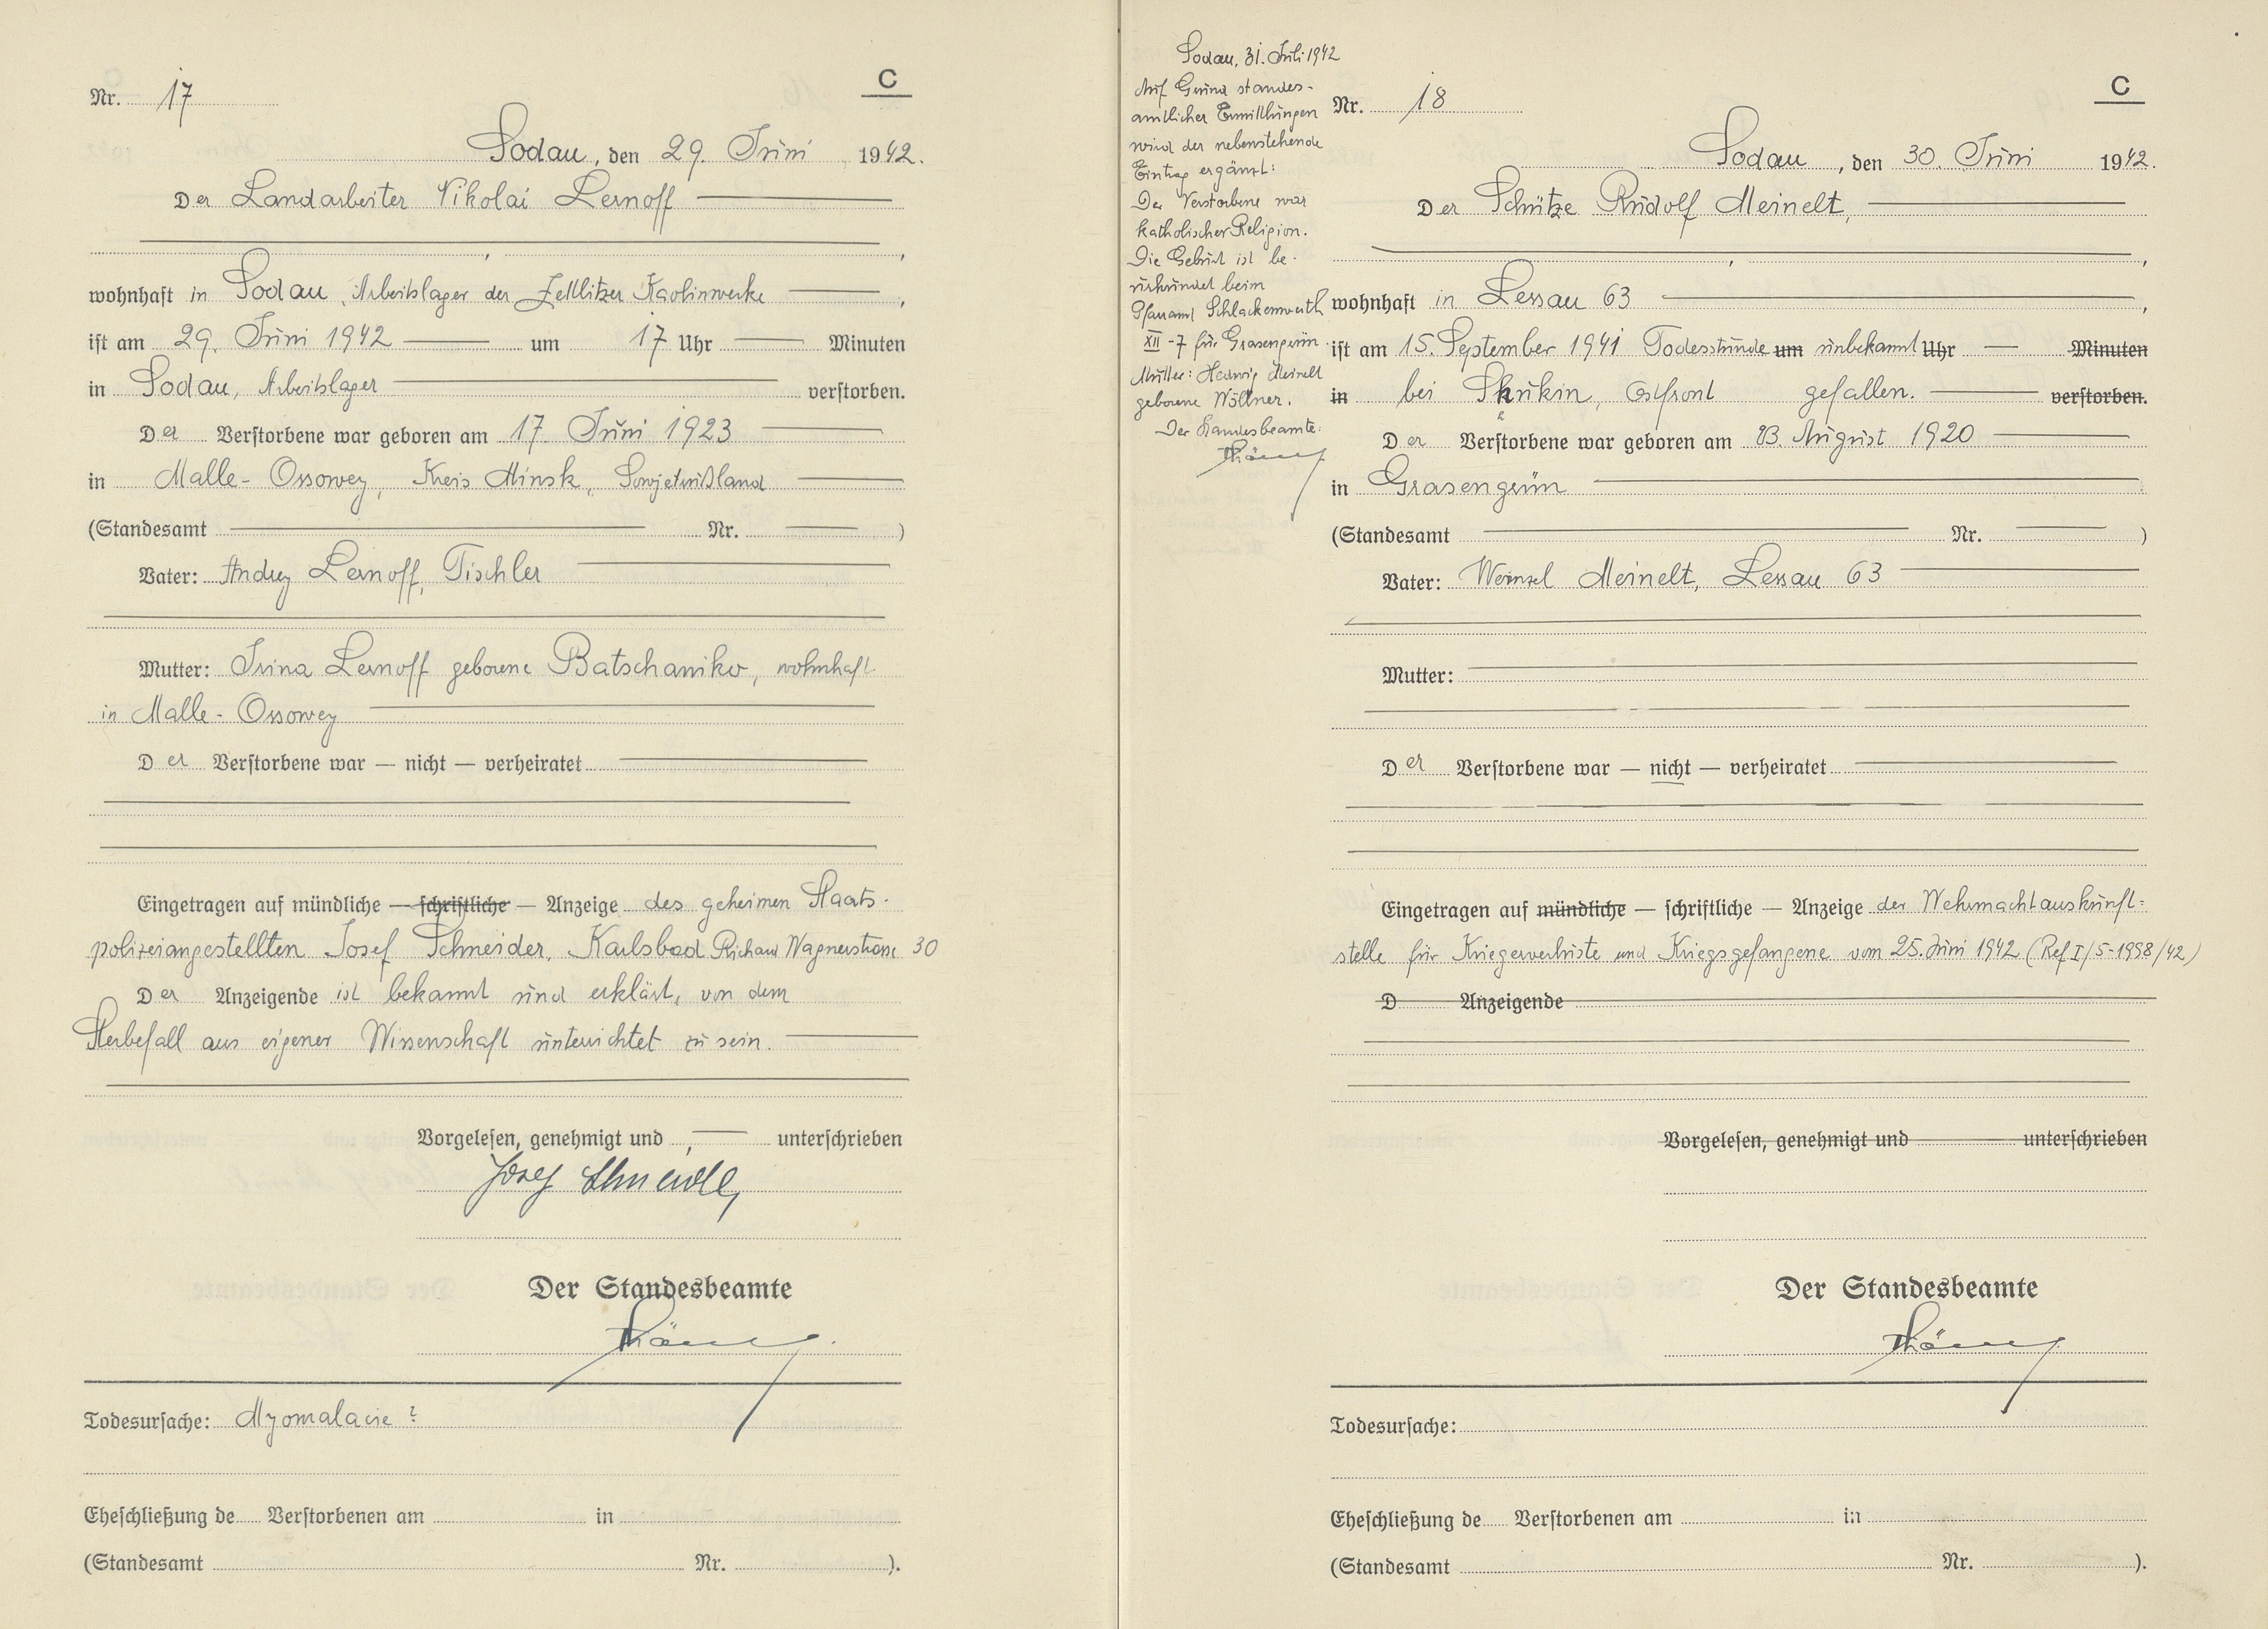 Nr. 17
C
Sodau, den 29. Juni 1942.
Der Landarbeiter Nikolai Lernoff
wohnhaft in Sodau, Arbeitslager der Zettlitzer Kaolinwerke,
ist am 29. Juni 1942 um 17 Uhr Minuten
in Sodau, Arbeitslager verstorben.
Der Verstorbene war geboren am 17. Juni 1923
in Malle-Ossowey, Kreis Minsk, Sowjetrußland
(Standesamt Nr. )
Vater: Andrey Lernoff, Tischler
Mutter: Irina Lernoff geborene Batschaniko, wohnhaft
in Malle-Ossowey
Der Verstorbene war — nicht — verheiratet
Eingetragen auf mündliche — schriftliche — Anzeige des geheimen Staats-
polizeiangestellten Josef Schneider, Karlsbad Richard Wagnerstrasse 30
Der Anzeigende ist bekannt und erklärt, von dem
Sterbefall aus eigener Wissenschaft unterrichtet zu sein.
Vorgelesen, genehmigt und unterschrieben
Josef Schneider
Der Standesbeamte
Todesursache: Myomalacie ?
Eheschließung de Verstorbenen am in
(Standesamt Nr. ).
Sodau, 31. Juli 1942
Auf Grund standes-
amtlicher Ermittlungen
wird der nebenstehende
Eintrag ergänzt:
Der Verstorbene war
katholischer Religion.
Die Geburt ist be-
urkundet beim
Pfarramt Schlackenwerth
XII - 7 für Grasengrün.
Mutter: Hedwig Meinelt
geborene Wöllner.
Der Standesbeamte:
Nr. 18
C
Sodau, den 30. Juni 1942.
Der Schütze Rudolf Meinelt,
wohnhaft in Lessau 63,
ist am 15. September 1941 Todesstunde um unbekannt Uhr — Minuten
in bei Skukin, Ostfront gefallen. verstorben.
Der Verstorbene war geboren am 23. August 1920
in Grasengrün
(Standesamt Nr. )
Vater: Wenzel Meinelt, Lessau 63
Mutter:
Der Verstorbene war — nicht — verheiratet
Eingetragen auf mündliche — schriftliche — Anzeige der Wehrmachtauskunft-
stelle für Kriegerverluste und Kriegsgefangene vom 25. Juni 1942 (Ref. I/5-1998/42)
D Anzeigende
Vorgelesen, genehmigt und unterschrieben
Der Standesbeamte
Todesursache:
Eheschließung de Verstorbenen am in
(Standesamt Nr. ).